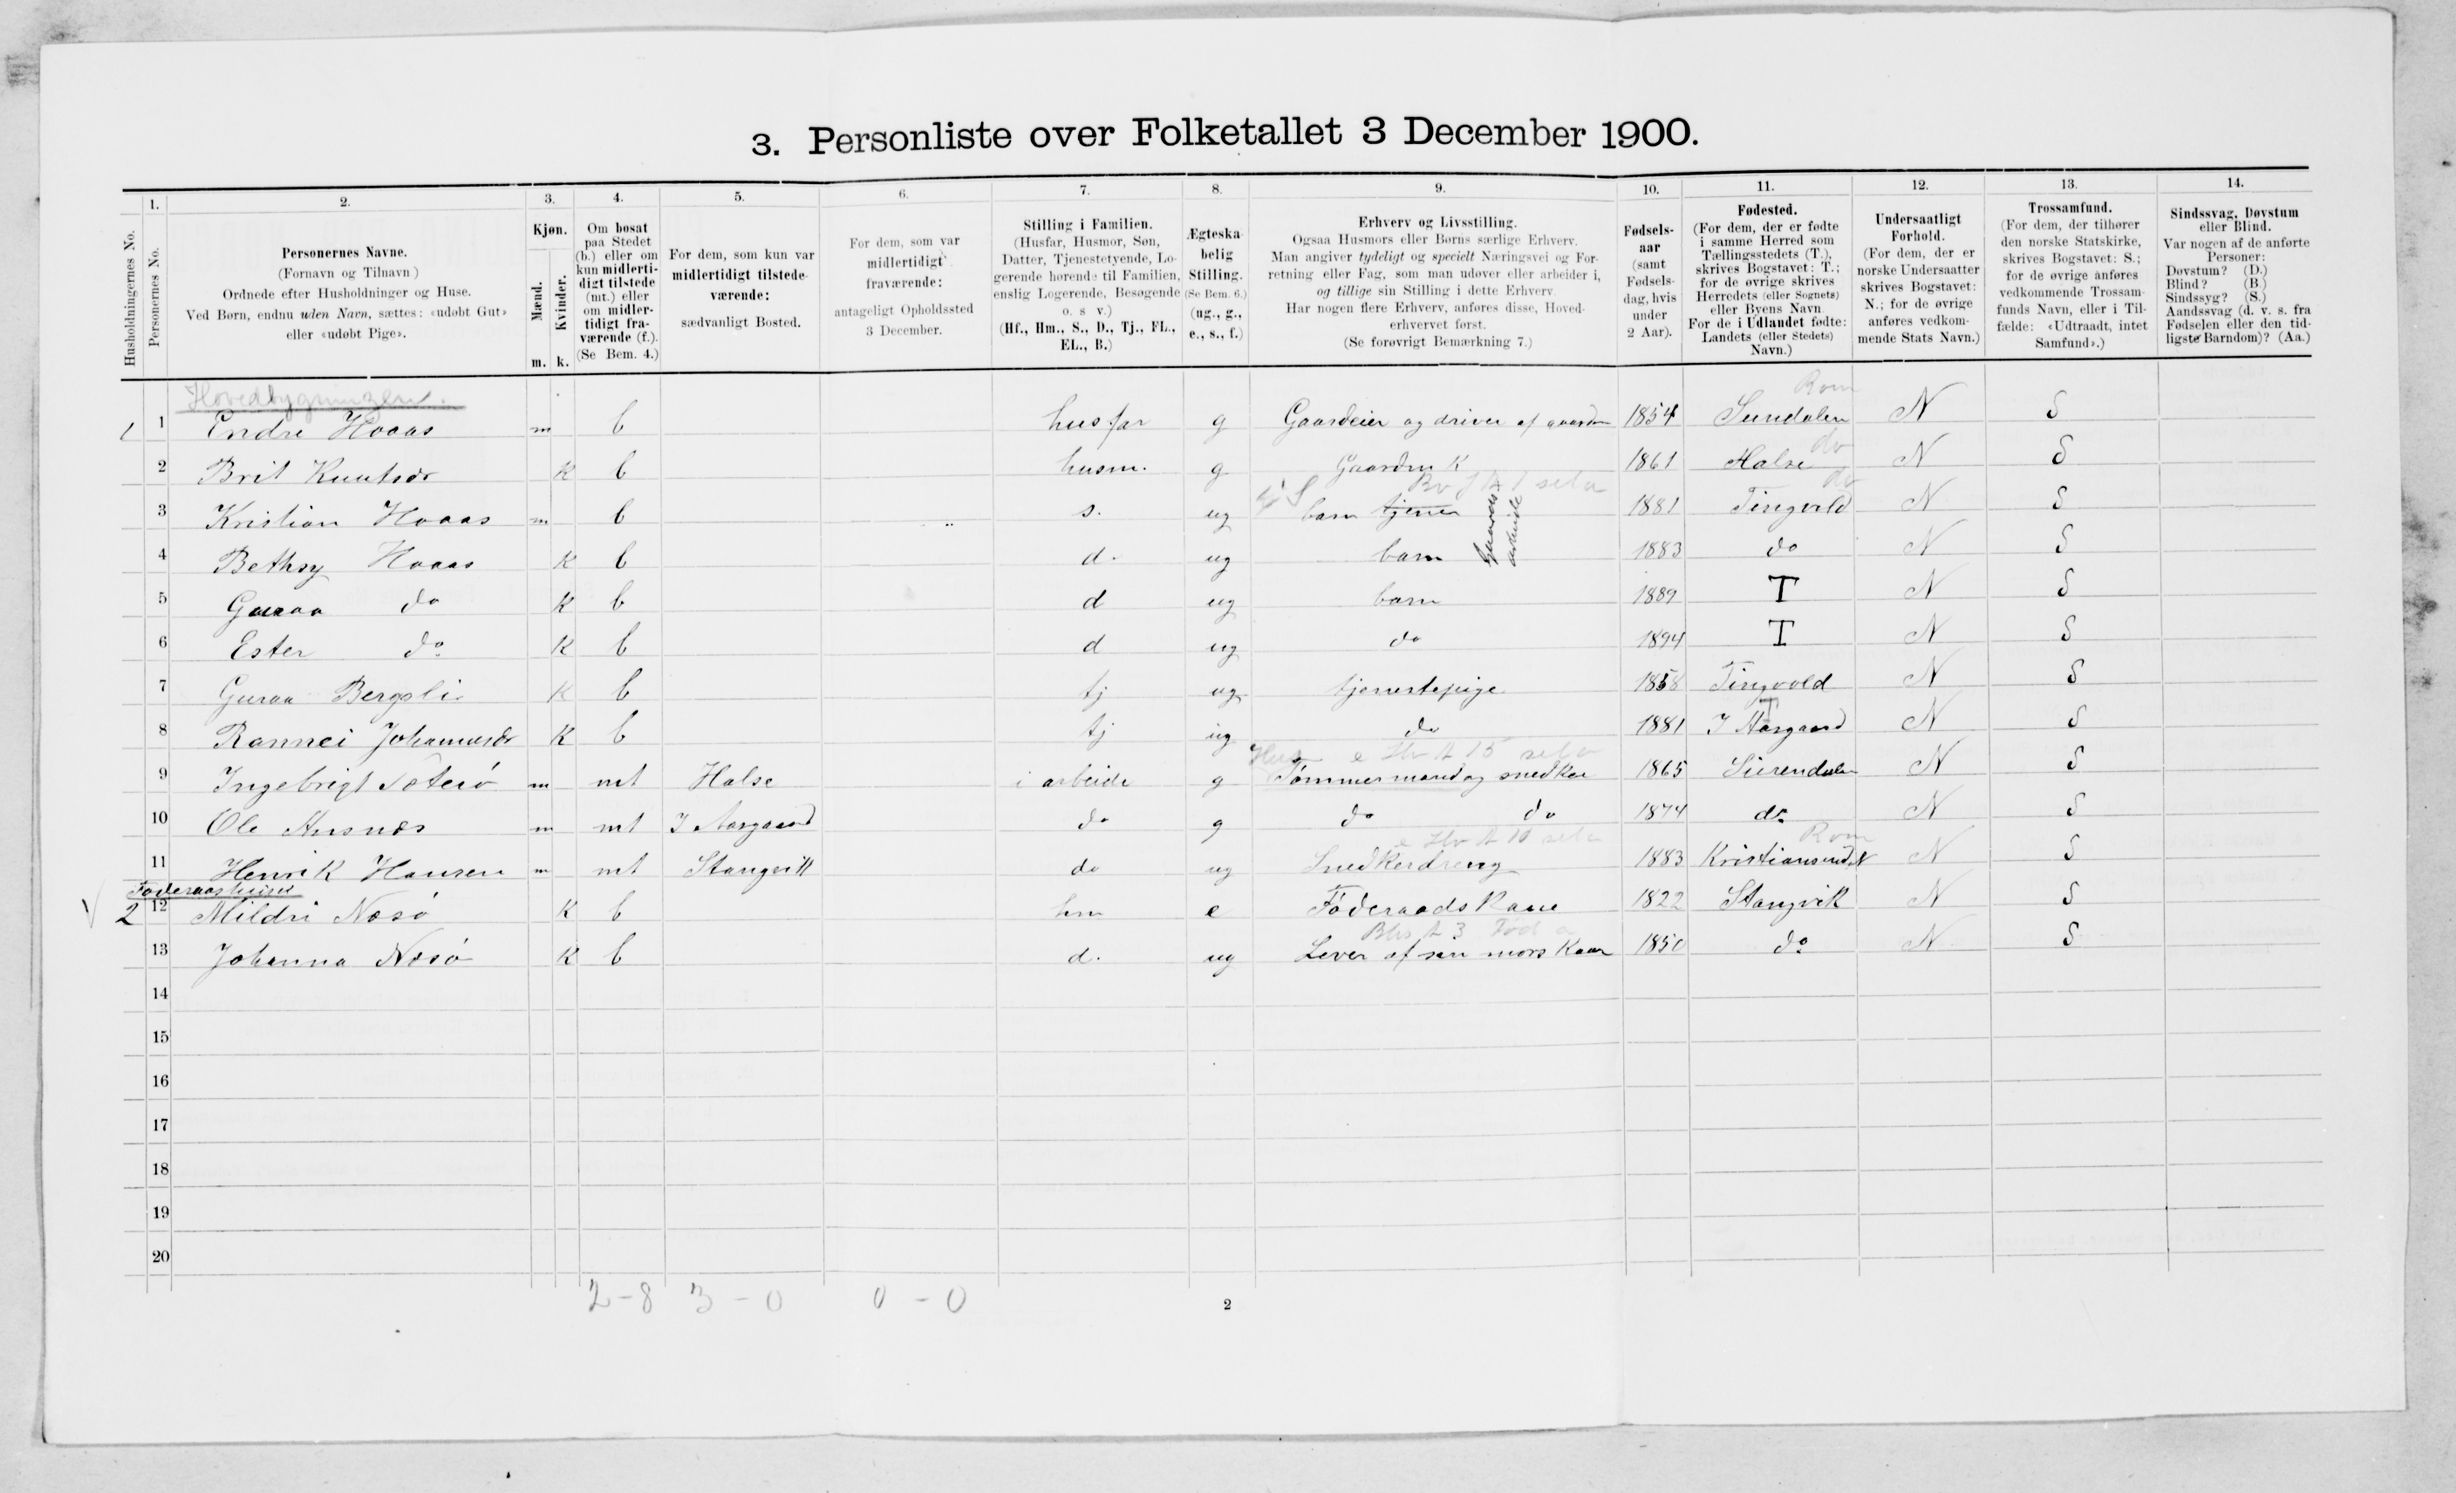 3. Personliste over Folketallet 3 December 1900.
1. 2. 3. 4. 5. 6. 7. 8. 9. 10. 11. 12. 13. 14.
Husholdningernes No.
Personernes No.
Personernes Navne.
(Fornavn og Tilnavn)
Ordnede efter Husholdninger og Huse.
Ved Børn, endnu uden Navn, sættes: «udøbt Gut»
eller «udøbt Pige».
Kjøn.
Mænd.
Kvinder.
m. k.
Om bosat
paa Stedet
(b.) eller om
kun midlerti-
digt tilstede
(mt.) eller
om midler-
tidigt fra-
værende (f.).
(Se Bem. 4.)
For dem, som kun var
midlertidigt tilstede-
værende:
sædvanligt Bosted.
For dem, som var
midlertidigt
fraværende:
antageligt Opholdssted
3 December.
Stilling i Familien.
(Husfar, Husmor, Søn,
Datter, Tjenestetyende, Lo-
gerende hørende til Familien,
enslig Logerende, Besøgende
o. s v.)
(Hf., Hm., S., D., Tj., FL.,
EL., B.)
Ægteska-
belig
Stilling.
(Se Bem. 6.)
(ug., g.,
e., s., f.)
Erhverv og Livsstilling.
Ogsaa Husmors eller Børns særlige Erhverv.
Man angiver tydeligt og specielt Næringsvei og For-
retning eller Fag, som man udøver eller arbeider i,
og tillige sin Stilling i dette Erhverv.
Har nogen flere Erhverv, anføres disse, Hoved-
erhvervet først.
(Se forøvrigt Bemærkning 7.)
Fødsels-
aar
(samt
Fødsels-
dag, hvis
under
2 Aar).
Fødested.
(For dem, der er fødte
i samme Herred som
Tællingsstedets (T.),
skrives Bogstavet: T.;
for de øvrige skrives
Herredets (eller Sognets)
eller Byens Navn.
For de i Udlandet fødte:
Landets (eller Stedets)
Navn.)
Undersaatligt
Forhold.
(For dem, der er
norske Undersaatter
skrives Bogstavet:
N.; for de øvrige
anføres vedkom-
mende Stats Navn.)
Trossamfund.
(For dem, der tilhører
den norske Statskirke,
skrives Bogstavet: S.;
for de øvrige anføres
vedkommende Trossam-
funds Navn, eller i Til-
fælde: «Udtraadt, intet
Samfund».)
Sindssvag, Døvstum
eller Blind.
Var nogen af de anførte
Personer:
Døvstum? (D.)
Blind? (B.)
Sindssyg? (S.)
Aandssvag (d. v. s. fra
Fødselen eller den tid-
ligste Barndom)? (Aa.)
Hovedbygningen. Rom
1 1 Endre Hoaas m b husfar g Gaardeier og driver af gaarden 1854 Sundalen N S
do
2 Brit Knutsdr k b husm. g Gaardm K 1861 Halse N S
do
3 Kristian Hoaas m b s. ug barn tjener 1881 Tingvold N S
gaards
arbeide
4 Bethsy Hoaas k b d. ug barn 1883 do N S
5 Guraa do k b d ug barn 1889 T N S
6 Ester do k b d ug do 1894 T N S
7 Guraa Bergsli k b tj ug tjenestepige 1858 Tingvold N S
T
8 Rannei Johannesdr k b tj ug do 1881 I Aasgaard N S
9 Ingebrigt Sæterø m mt Halse i arbeide g Tømmermand og snedker 1865 Surendalen N S
10 Ole Husnes m mt I Aasgaard do g do do 1874 do N S
Rom
11 Henrik Hansen m mt Stangvik do ug Snedkerdreng 1883 Kristiansund N N S
Føderaashuset
2 12 Mildri Næsø k b hm e Føderaadskane 1822 Stangvik N S
13 Johanna Næsø k b d. ug Lever af sin mors Kaar 1850 do N S
14
15
16
17
18
19
20
2-8 3-0 0-0
2